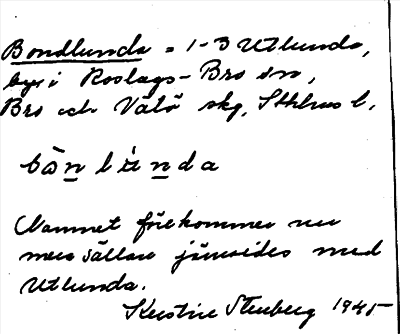 Bondlunda = 1-3 Utlunda,
byar i Roslags-Bro sn,
Bro och Vätö skg, Sthlms l.
bo᷈nlu̇nda
Namnet förekommer nu
mera sällan jämsides med
Utlunda.
Kerstin Stenberg 1945